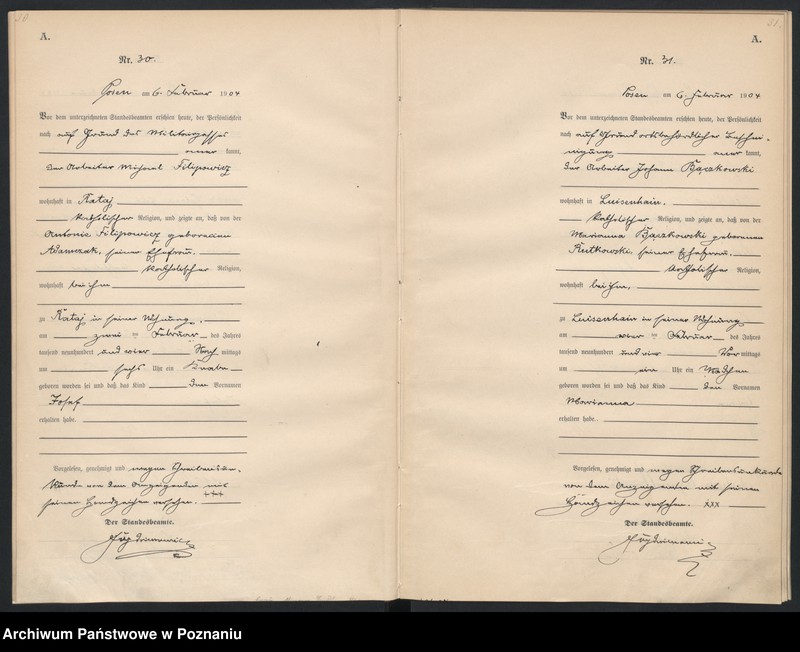 30
A.
Nr. 30.
Posen am 6. Februar 1904
Vor dem unterzeichneten Standesbeamten erschien heute, der Persönlichkeit
nach auf Grund des Militärpasses
kannt,
der Arbeiter Michael Filipowicz
wohnhaft in Rataj
katholischer Religion, und zeigte an, daß von der
Antonie Filipowicz geborenen
Adamczak, seiner Ehefrau,
katholischer Religion,
wohnhaft bei ihm
zu Rataj in seiner Wohnung,
am zwei ten Februar des Jahres
tausend neunhundert und vier Nachmittags
um sechs Uhr ein Knabe
geboren worden sei und daß das Kind den Vornamen
Josef
erhalten habe.
Vorgelesen, genehmigt und wegen Schreibensun-
kunde von dem Anzeigenden mit
seinen Handzeichen versehen. +++
Der Standesbeamte.
31.
A.
Nr. 31.
Posen am 6. Februar 1904
Vor dem unterzeichneten Standesbeamten erschien heute, der Persönlichkeit
nach auf Grund ortsbehördlicher Beschei-
nigung kannt,
der Arbeiter Johann Bączkowski
wohnhaft in Luisenhain,
katholischer Religion, und zeigte an, daß von der
Marianna Bączkowski geborenen
Rutkowski, seiner Ehefrau,
katholischer Religion,
wohnhaft bei ihm,
zu Luisenhain in seiner Wohnung
am vier ten Februar des Jahres
tausend neunhundert und vier Vormittags
um ein Uhr ein Mädchen
geboren worden sei und daß das Kind den Vornamen
Marianna
erhalten habe.
Vorgelesen, genehmigt und wegen Schreibensunkunde
von dem Anzeigenden mit seinen
Handzeichen versehen. xxx
Der Standesbeamte.
Archiwum Państwowe w Poznaniu